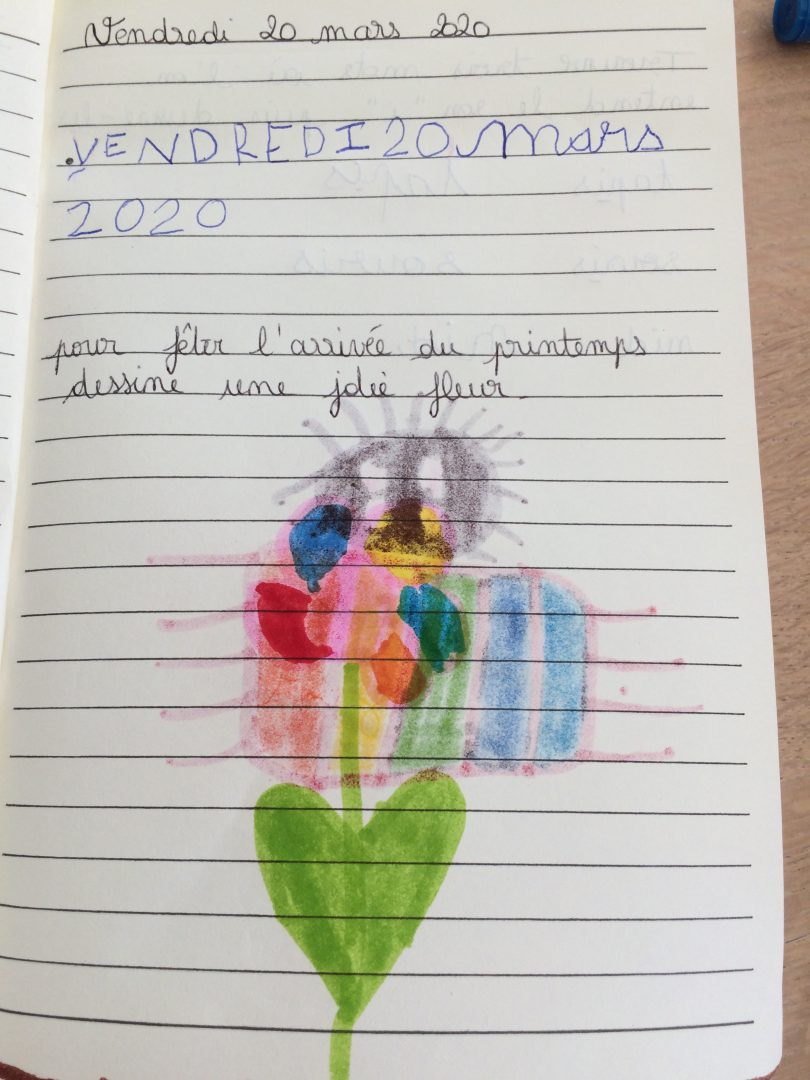 Vendredi 20 mars 2020
VENDREDI 20 mars
2020
pour fêter l'arrivée du printemps
dessine une jolie fleur.